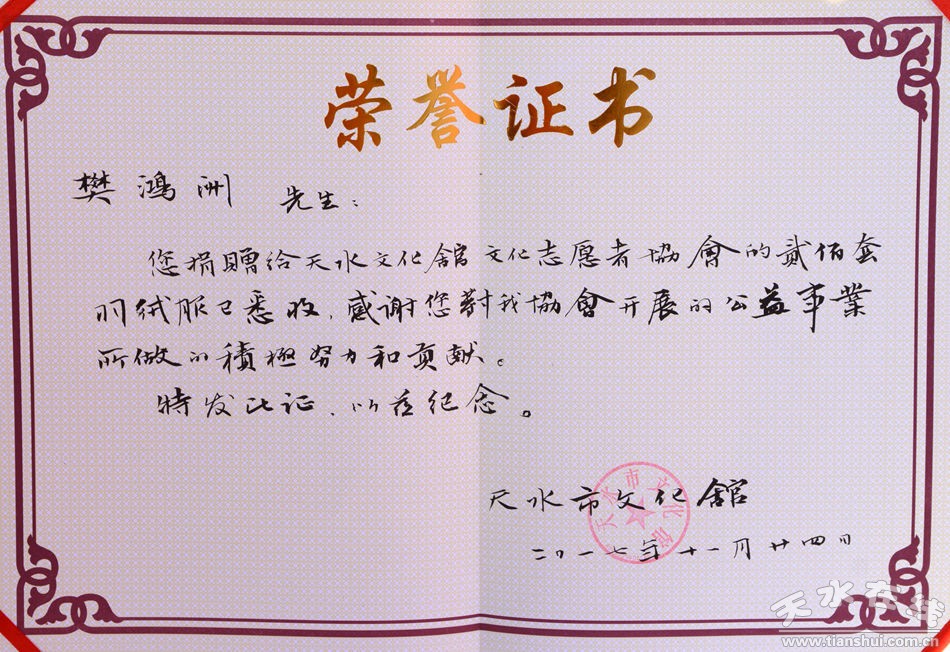 荣誉证书
樊鸿洲 先生：
您捐赠给天水文化舘文化志愿者協會的贰佰套
羽绒服已悉收，感谢您對我協會开展的公益事業
所做的積極努力和贡献。
特发此证，以兹纪念。
天水市文化舘
天水市文化馆
二〇一七年十一月廿四日
天水在线
www.tianshui.com.cn